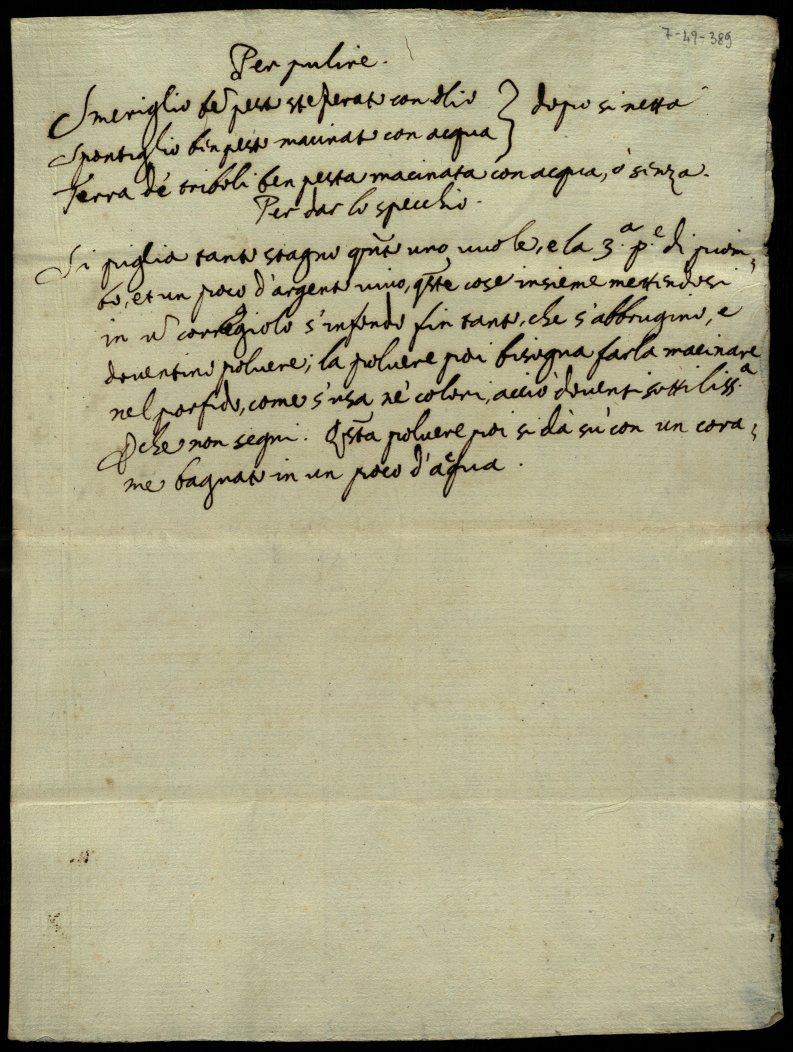 7-49-389
Per pulire.
Smeriglio bē pesto steperato con olio } dopo si netta
Spontiglio ben pesto macinato con acqua
Terra dé triboli ben pesta macinata con acqua, ò senza.
Per dar lo specchio.
Si piglia tanto stagno qn̄to uno vuole, e la 3.a p.e di piom,
bo, et un poco d'argento vivo, qs̄te cose insieme mettendosi
in ū correggiolo s'infondo fin tanto, che s'abbrugino, e
doventino polvere; la polvere poi bisogna farla macinare
nel porfido, come s'usa né colori, acciò doventi sottiliss.a
che non segni. Qs̄ta polvere poi si dà sù con un cora,
me bagnato in un poco d'acqua.